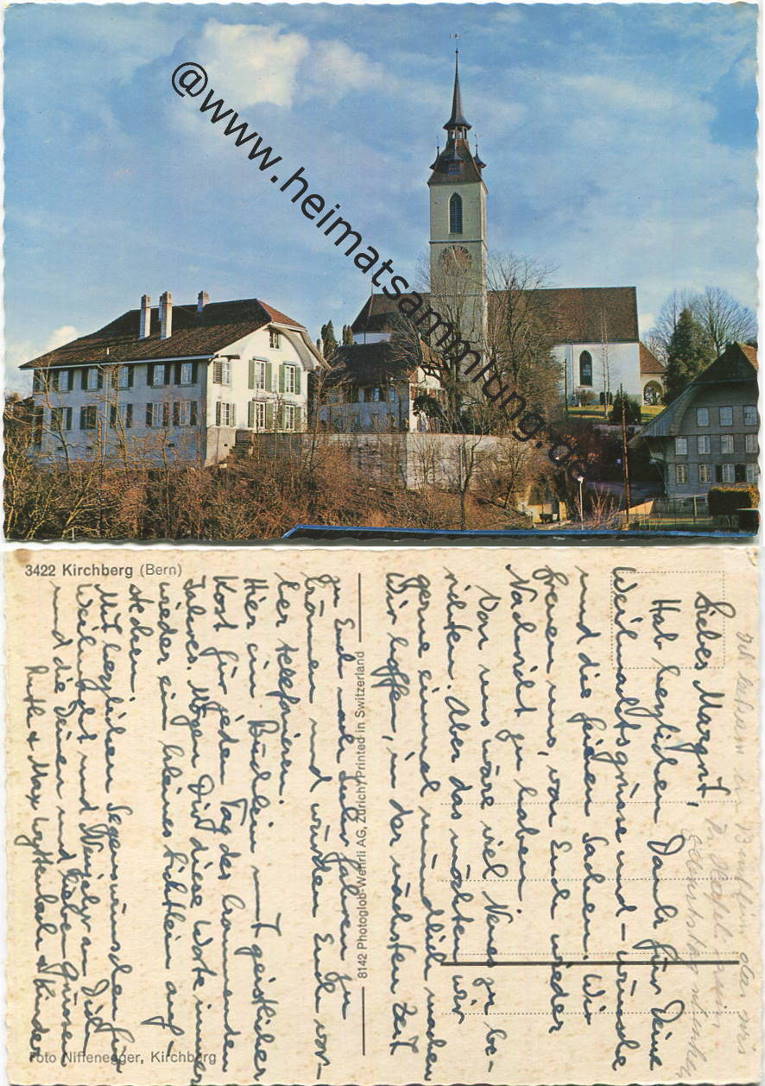 @www.heimatsammlung.de
3422 Kirchberg (Bern)
Liebes Margrit,
Hab herzlichen Dank für Deine
Weihnachtsgrüsse und -wünsche
und die feinen Sachen. Wir
freuen uns, von Euch wieder
Nachricht zu haben.
Von uns wäre viel Neues zu be-
richten. Aber das möchten wir
gerne einmal mündlich machen
Wir hoffen, in der nächsten Zeit
zu Euch nach fahren zu
können und würden Euch vor-
her telefonieren.
Hier ein Büchlein mit geistlicher
Kost für jeden Tag des kommenden
Jahres. Mögen Dir diese Worte immer
wieder ein kleines Lichtlein auf-
stecken.
Mit herzlichen Segenswünschen für
Weihnacht und Neujahr an Dich
und die Deinen und lieben Grüssen
Ruth & Max & Kinder
8142 Photoglob-Wehrli AG, Zürich/Printed in Switzerland
Foto Niffenegger, Kirchberg